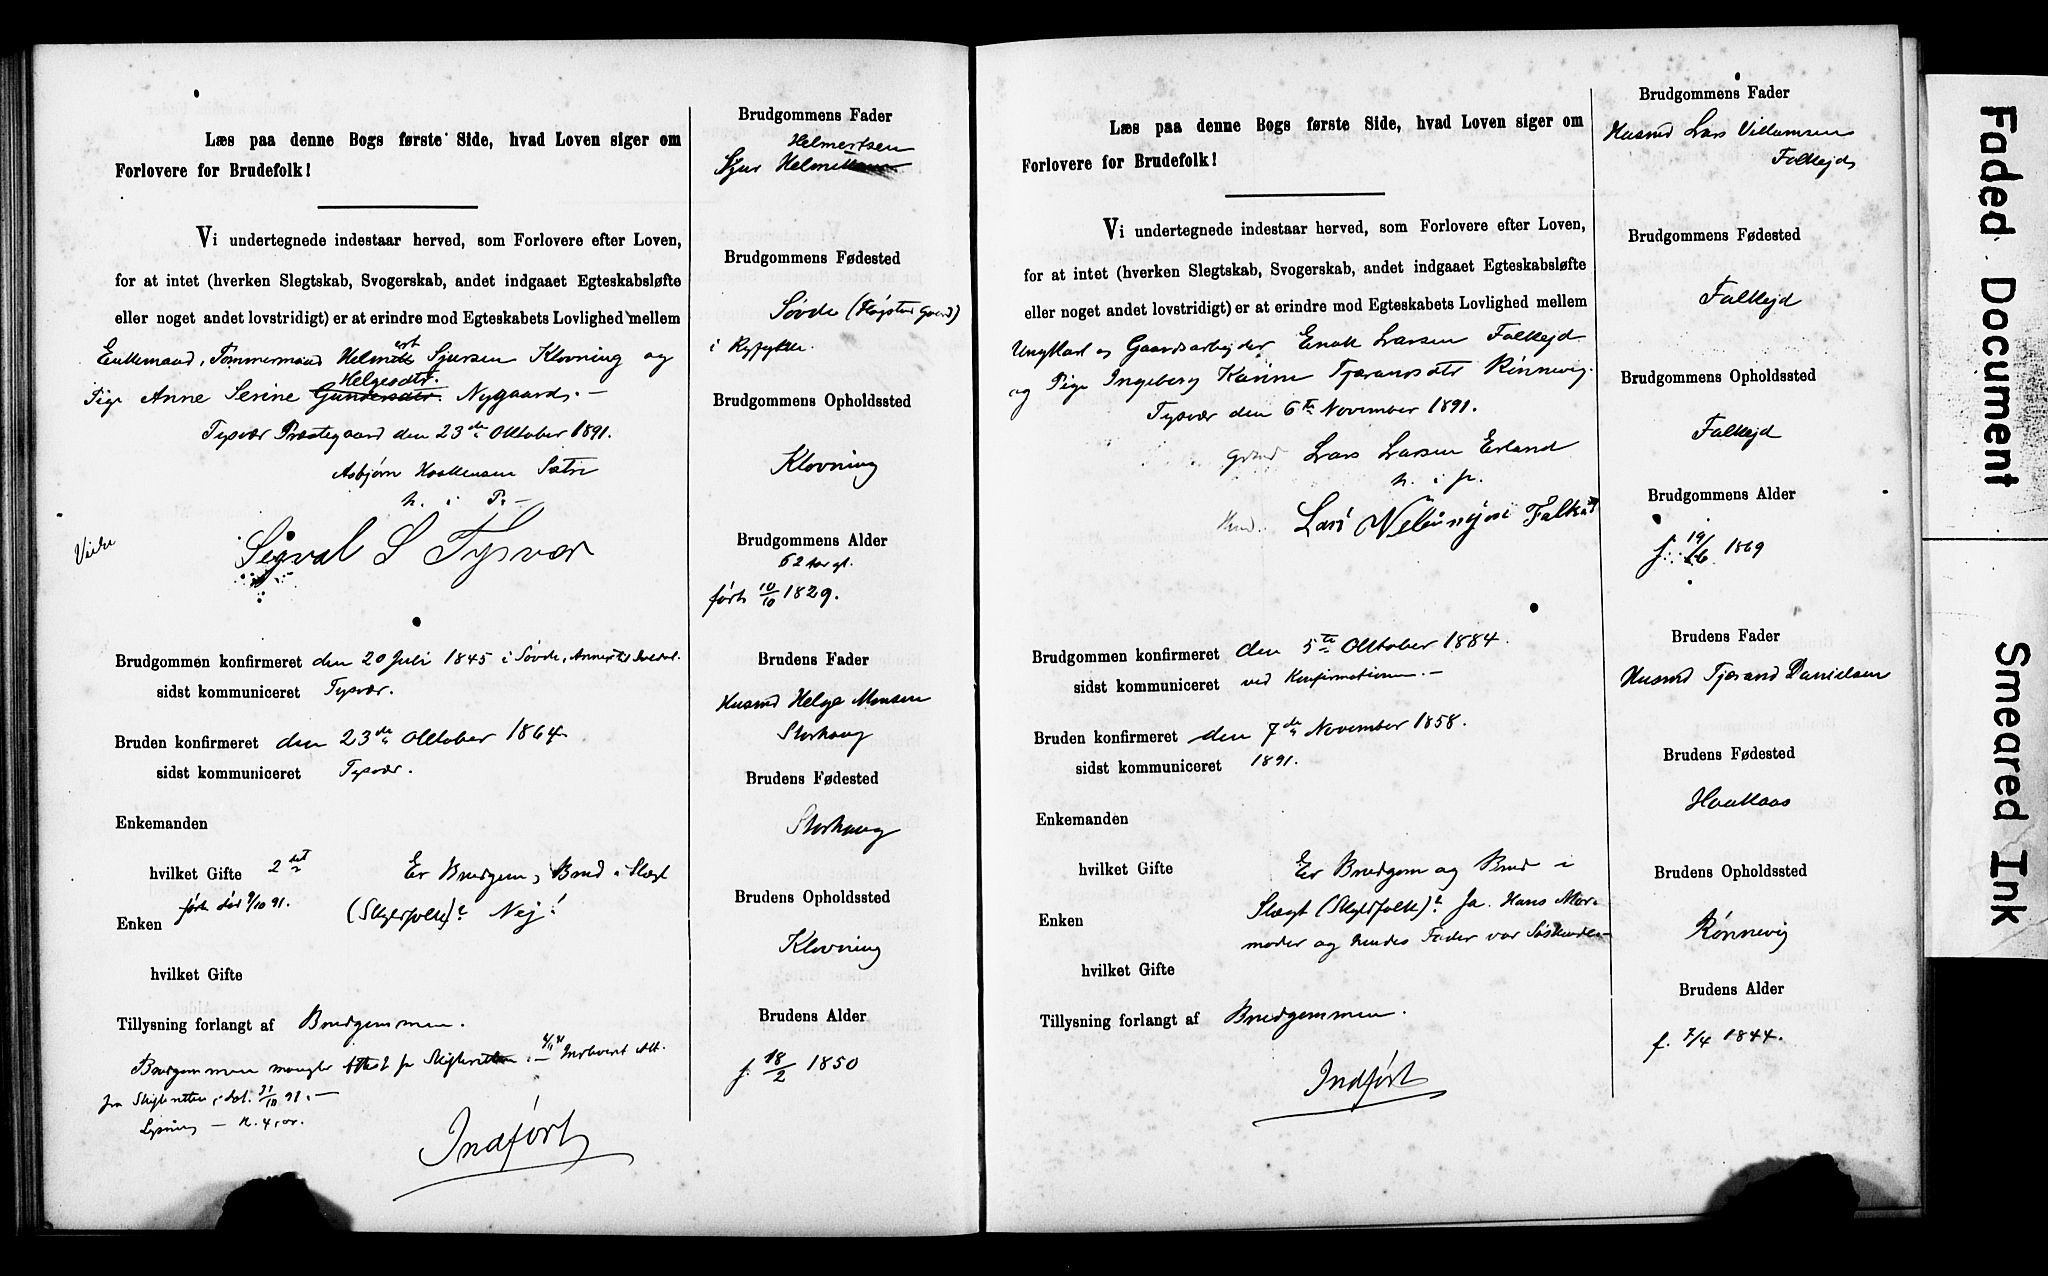 Læs paa denne Bogs første Side, hvad Loven siger om
Forlovere for Brudefolk!
Vi undertegnede indestaar herved, som Forlovere efter Loven,
for at intet (hverken Slegtskab, Svogerskab, andet indgaaet Egteskabsløfte
eller noget andet lovstridigt) er at erindre mod Egteskabets Lovlighed mellem
Enkemand, Tømmermand Helmert Sjursen Klovning og
Helgesdtr.
Pige Anne Serine Gundersdtr. Nygaard. —
Tysvær Præstegaard den 23de Oktober 1891.
Asbjørn Haakensen Sætre
h. i P. —
Sigval S Tysvær
Brudgommen konfirmeret den 20 Juli 1845 i Søvde,
sidst kommuniceret Tysvær.
Bruden konfirmeret den 23de Oktober 1864
sidst kommuniceret Tysvær.
Enkemanden
hvilket Gifte 2det
Er Brudgom og Brud i Slægt
død 9/10 91.
(Skyldfolk)? Nej!
Enken
hvilket Gifte
Tillysning forlangt af Brudgommen.
Brudgommen mangler Attest fra Skifteretten
fra Skifteretten, dat. 31/10 91. —
Lysning —
Indført
Brudgommens Fader
Helmertsen
Sjur
Brudgommens Fødested
Søvde
i Ryfylke.
Brudgommens Opholdssted
Klovning
Brudgommens Alder
62 Aar gl.
født 10/10 1829.
Brudens Fader
Husmd Helge Monsen
Storhaug
Brudens Fødested
Storhaug
Brudens Opholdssted
Klovning
Brudens Alder
f. 18/2 1850
Læs paa denne Bogs første Side, hvad Loven siger om
Forlovere for Brudefolk!
Vi undertegnede indestaar herved, som Forlovere efter Loven,
for at intet (hverken Slegtskab, Svogerskab, andet indgaaet Egteskabsløfte
eller noget andet lovstridigt) er at erindre mod Egteskabets Lovlighed mellem
Ungkarl og Gaardsarbejder Enok Larsen Falkejd
og Pige Ingeborg Karine Tjærandsdtr Rønnevig.
Tysvær den 6te November 1891.
Lars Larsen Erland
h. i p.
Lars
Brudgommen konfirmeret den 5te Oktober 1884.
sidst kommuniceret ved Konfirmationen. —
Bruden konfirmeret den 7de November 1858.
sidst kommuniceret 1891.
Enkemanden
hvilket Gifte
Er Brudgom og Brud i
Enken
Slægt (Skyldfolk)? Ja. Hans Mor-
moder og hendes Fader var Søskende —
hvilket Gifte
Tillysning forlangt af Brudgommen.
Indført
Brudgommens Fader
Husmd Lars Villumsen
Falkejd
Brudgommens Fødested
Falkejd
Brudgommens Opholdssted
Falkejd
Brudgommens Alder
f. 19/6 1869
Brudens Fader
Husmd Tjærand Danielsen
Brudens Fødested
Haakaas
Brudens Opholdssted
Rønnevig
Brudens Alder
f. 7/4 1844.
Faded Document
Smeared Ink